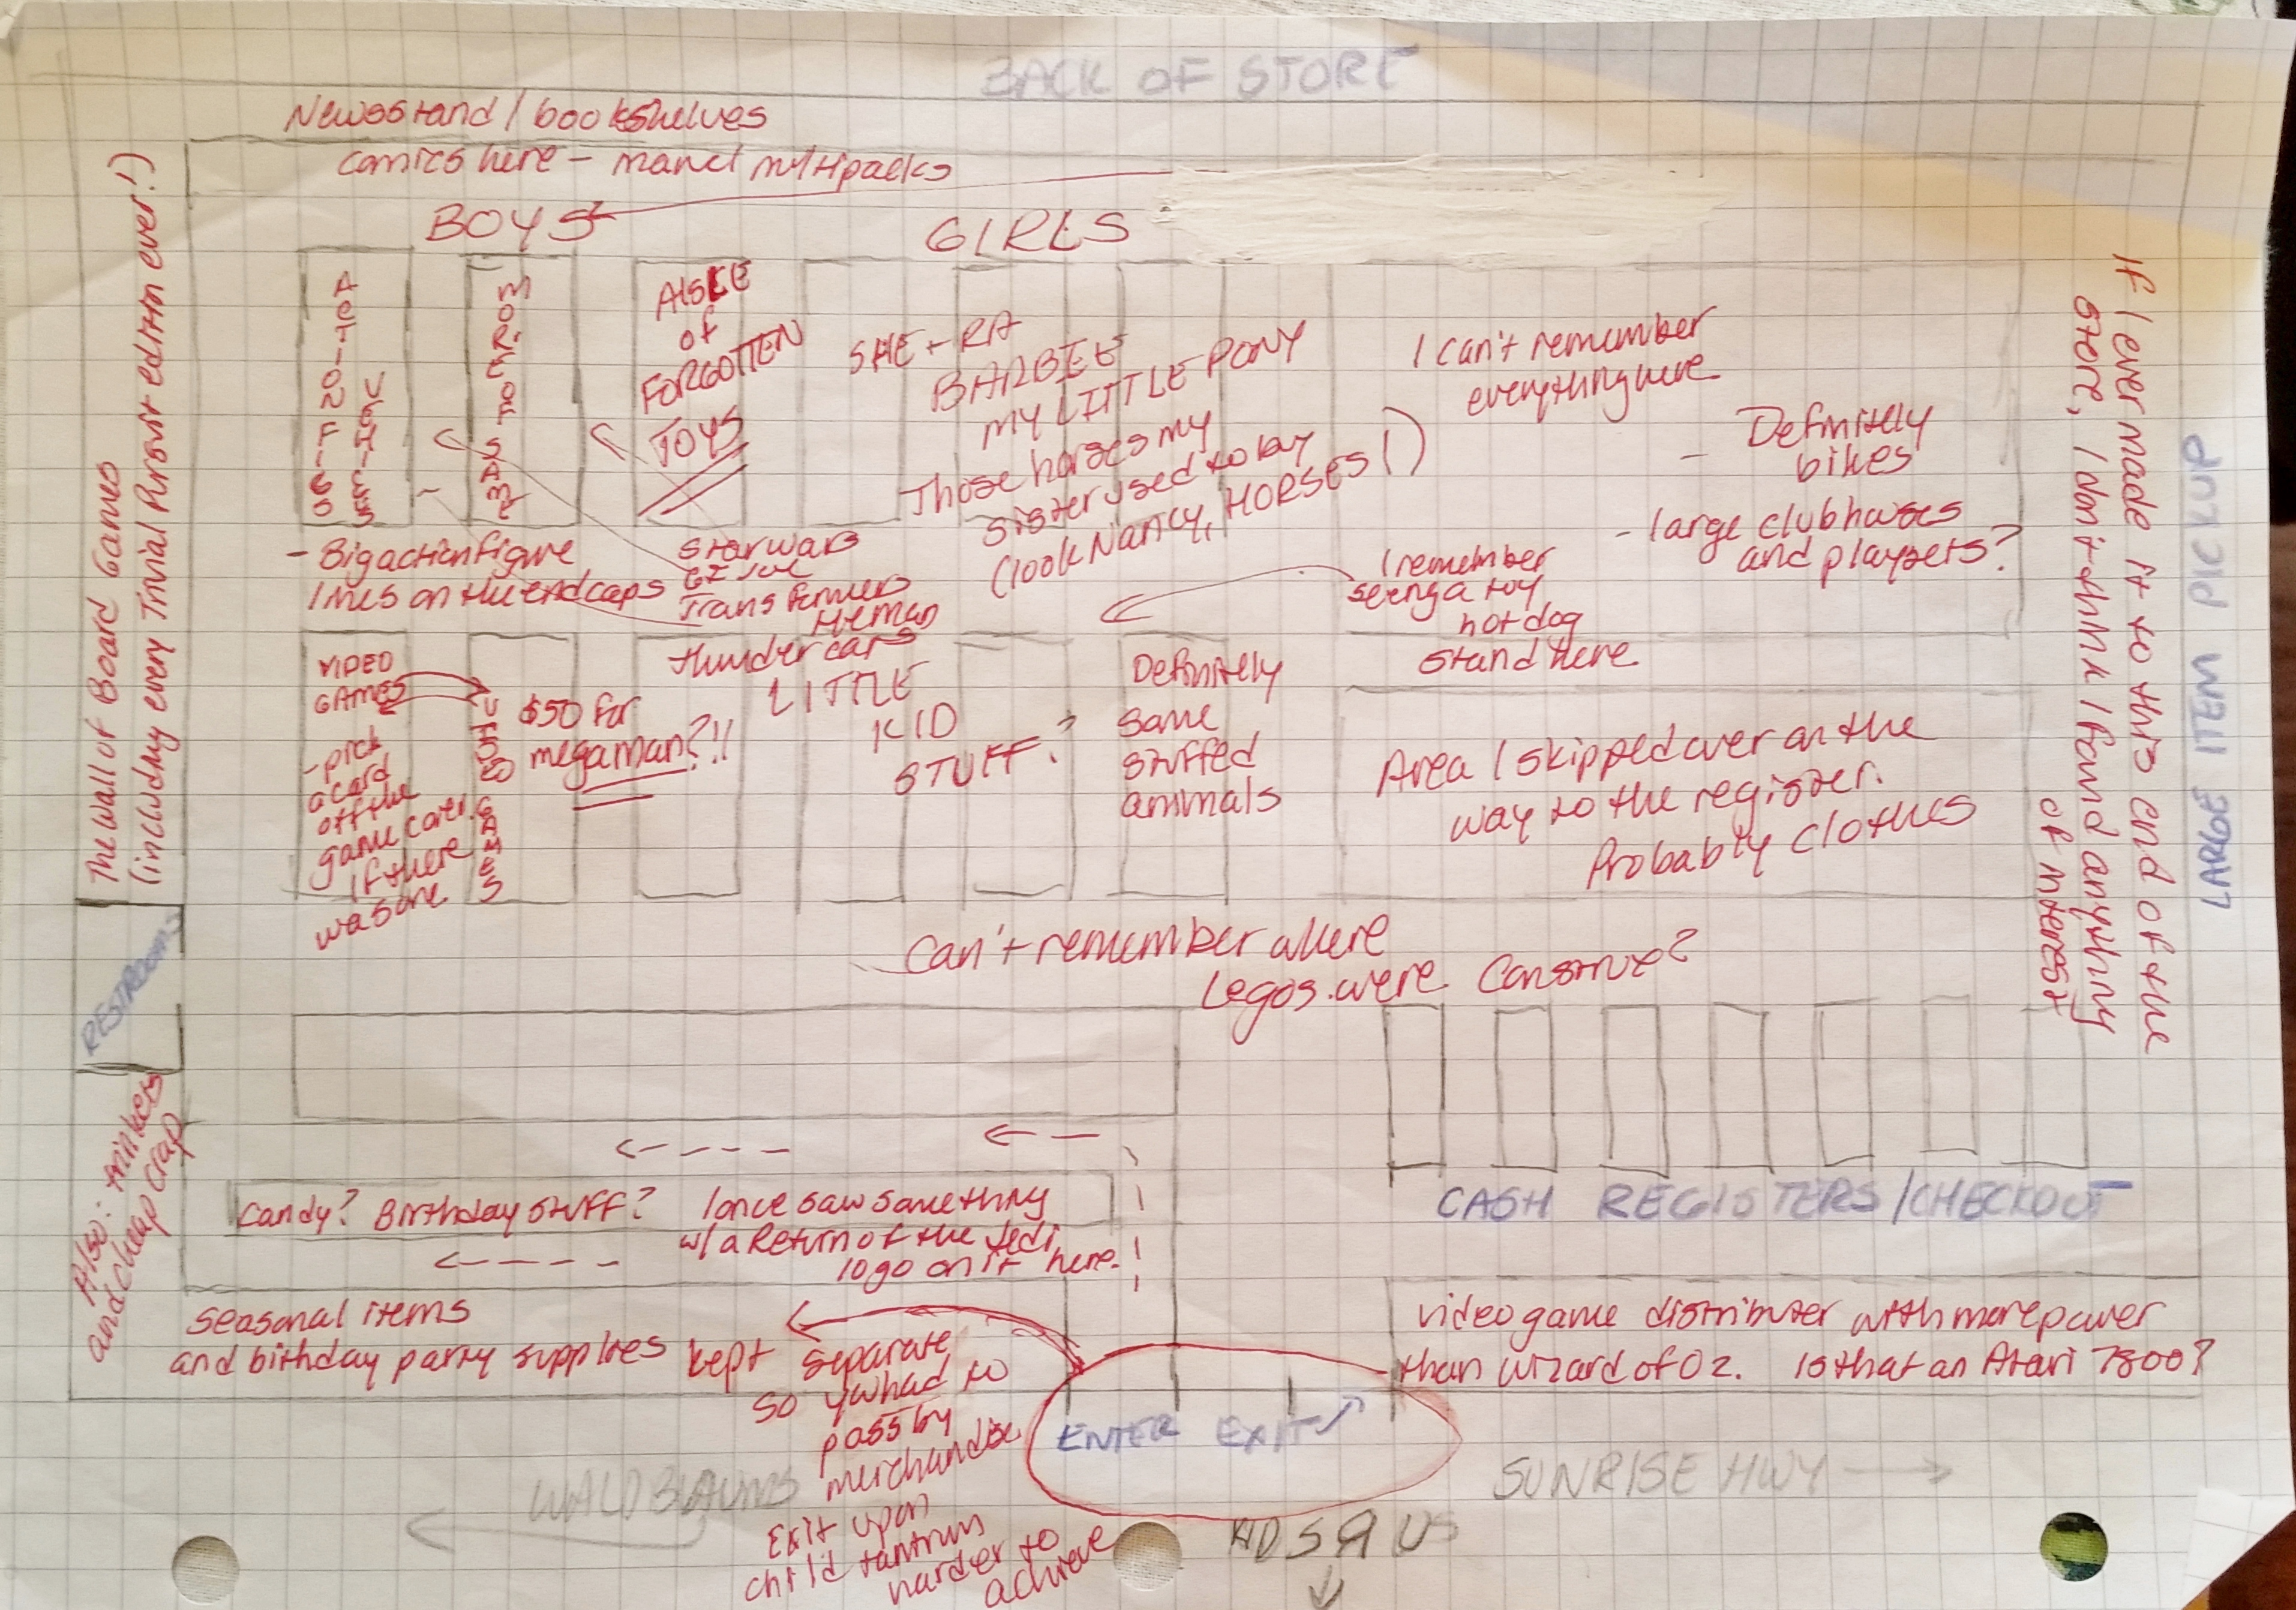 BACK OF STORE
Newsstand / bookshelves
comics here - marvel multipacks
BOYS
GIRLS
The Wall of Board Games
(including every Trivial Pursuit edition ever!)
ACTION FIGS
VEHICLES
MORE OF SAME
AISLE
of
FORGOTTEN
TOYS
SHE-RA
BARBIE
MY LITTLE PONY
Those horses my
sister used to buy
(look Nancy, HORSES!)
I can't remember
everything here
- Definitely
bikes
- large clubhouses
and playsets?
If I ever made it to this end of the
store, I don't think I found anything
of interest
LARGE ITEM PICKUP
- Big action figure
lines on the endcaps
Star Wars
GI Joe
Transformers
Heman
thundercats
I remember
seeing a toy
hot dog
stand here.
VIDEO
GAMES
- pick
a card
off the
game cover
if there
was one
VIDEO GAMES
$50 for
megaman?!!
LITTLE
KID
STUFF?
Definitely
some
stuffed
animals
Area I skipped over on the
way to the register.
Probably clothes
RESTROOMS
Can't remember where
Legos were. Construx?
Also: trinkets
and cheap crap
Candy? Birthday stuff? I once saw something
w/ a Return of the Jedi
logo on it here.
CASH REGISTERS/CHECKOUT
seasonal items
and birthday party supplies kept separate
so you had to
pass by
merchandise
Exit upon
child tantrum
harder to
achieve
video game distributer with more power
than Wizard of Oz. Is that an Atari 7800?
ENTER EXIT
WALDBAUMS
SUNRISE HWY